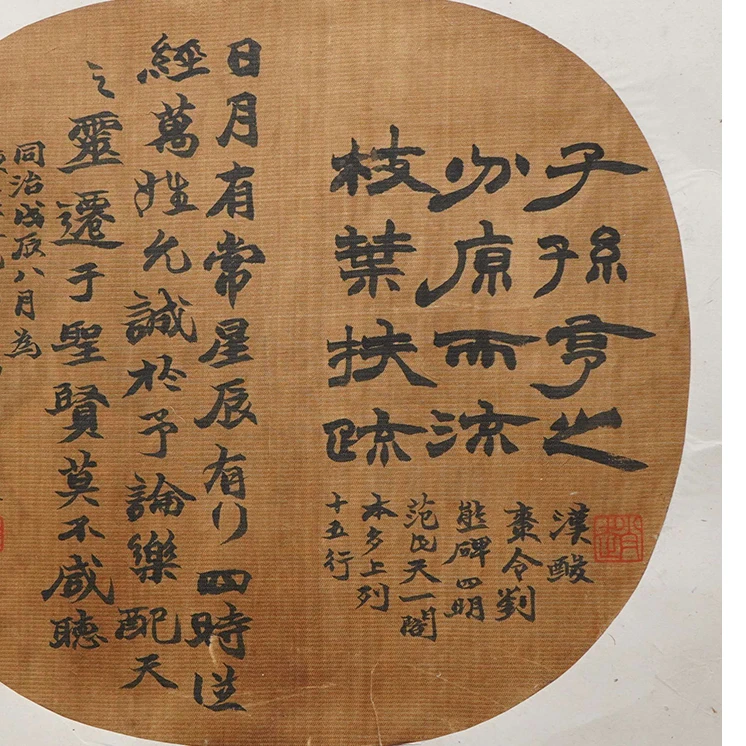 子孫亨之
分原而流
枝葉扶疏
漢酸
棗令劉
熊碑四明
范氏天一閣
本多上列
十五行
日月有常星辰有行四時從
經萬姓允誠於予論樂配天
之靈遷于聖賢莫不咸聽
同治戊辰八月為